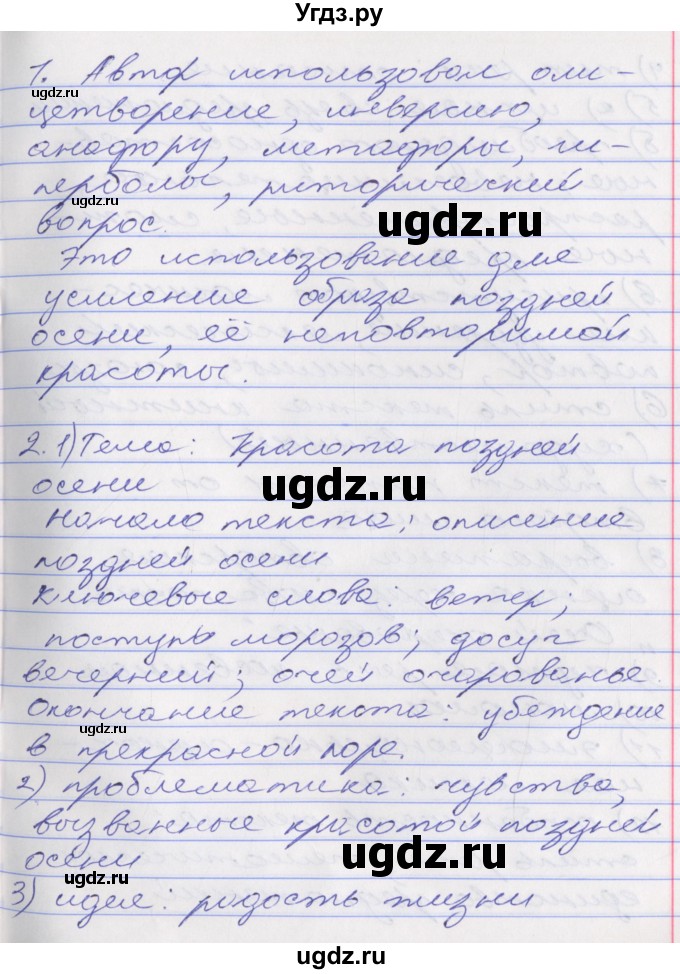 Угдз.ру
1. Автор использовал оли-
цетворение, инверсию,
анафору, метафоры, ги-
перболы, риторический
вопрос.
Это использование для
усиление образа поздней
осени, её неповторимой
красоты.
2. 1) Тема: Красота поздней
осени
Начало текста: описание
поздней осени
Ключевые слова: ветер;
поступь морозов; досуг
вечерний; очей очарованье.
Окончание текста: убеждение
в прекрасной поре.
2) проблематика: чувства,
вызванные красотой поздней
осени
3) идея: радость жизни
ugdz.ru
ugdz.ru
ugdz.ru
ugdz.ru
ugdz.ru
ugdz.ru
ugdz.ru
ugdz.ru
ugdz.ru